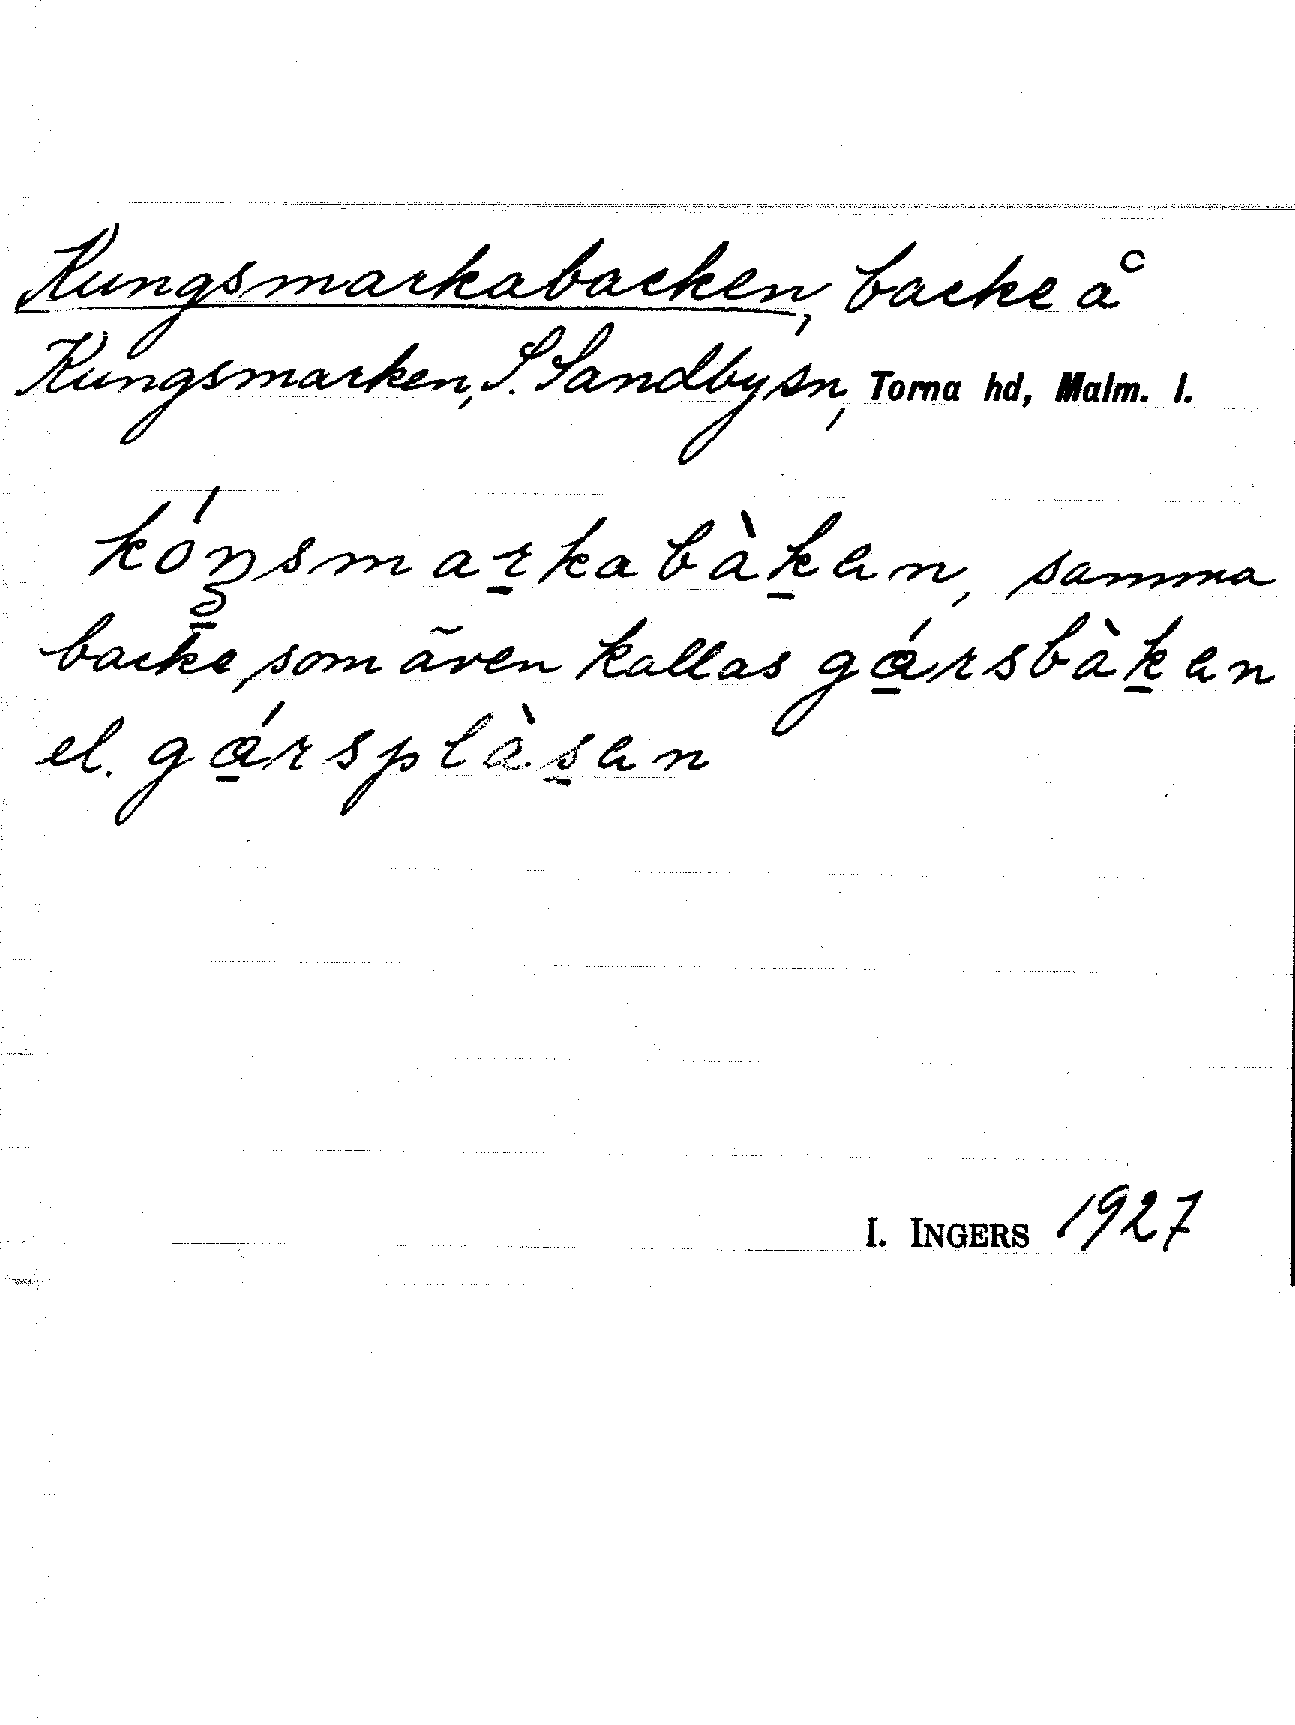 Kungsmarkabacken, backe å
Kungsmarken, S. Sandby sn, Torna hd, Malm. l.
kóŋ̱smaṟkabàḵan, samma
backe, som även kallas gǽ̱rsbàḵan
el. gǽ̱rsplàs̱an
I. INGERS 1927